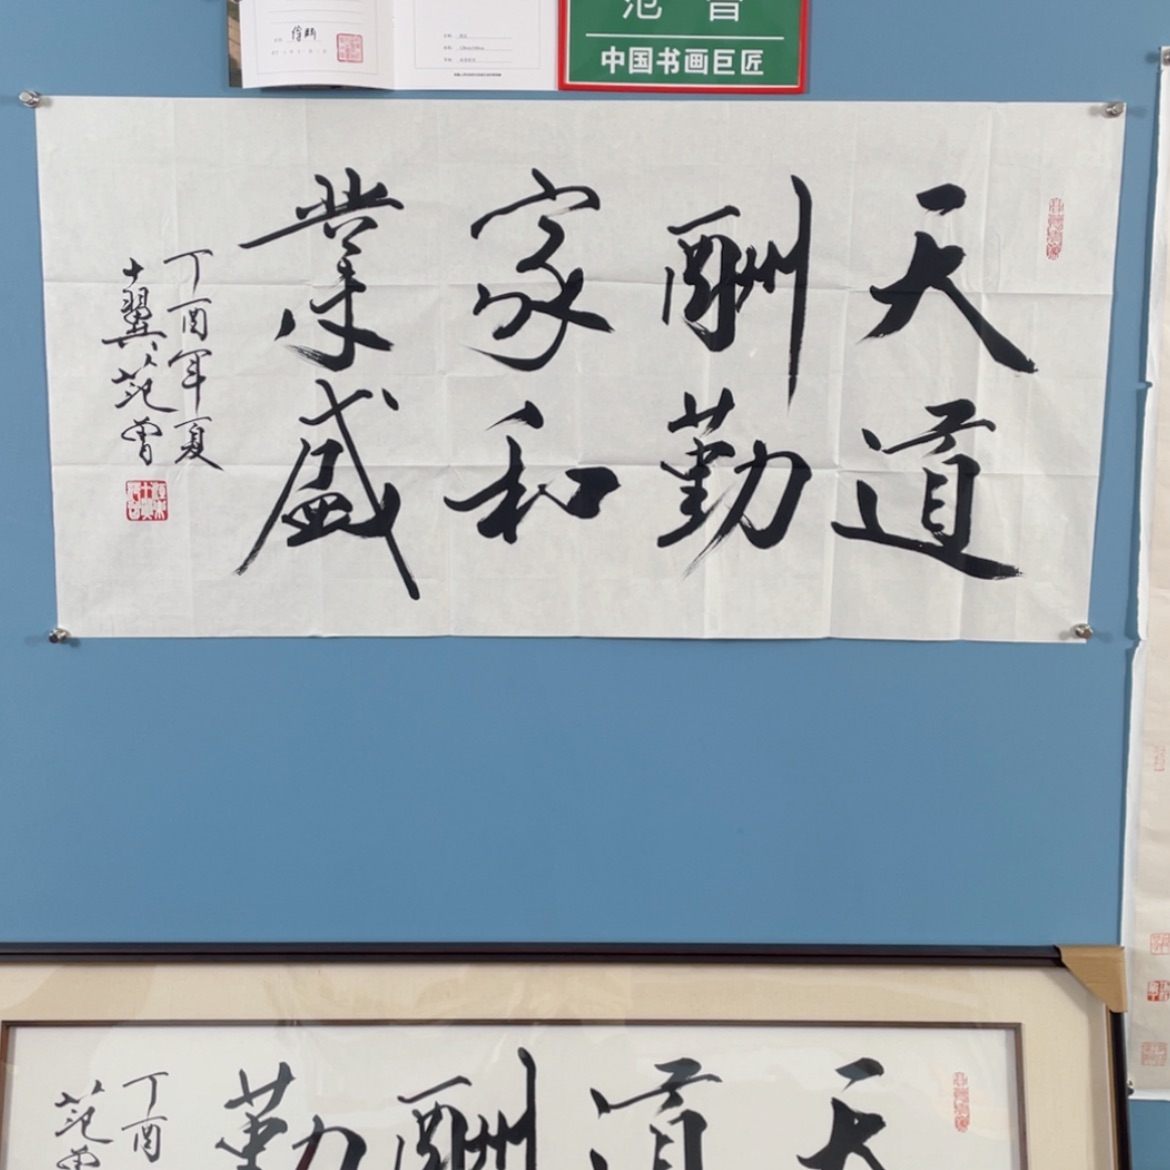 范曾
中国书画巨匠
天道
酬勤
家和
業盛
丁酉年夏
十翼范曾
天道酬勤
丁酉
范曾